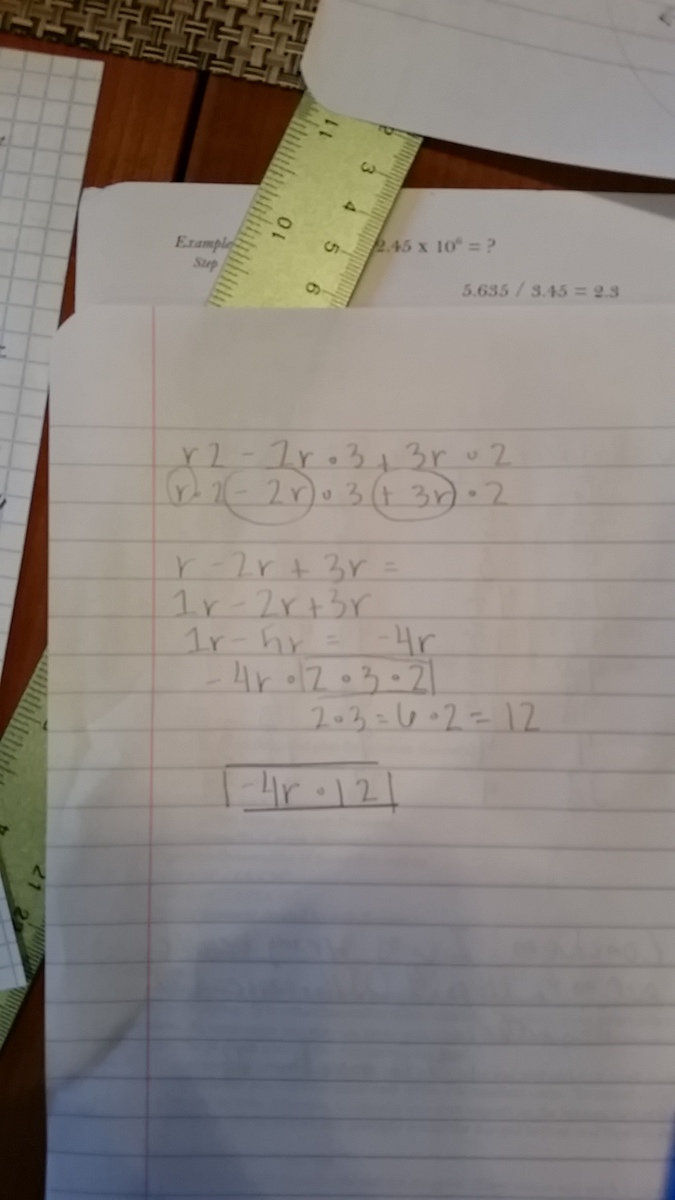 Example
Step
2.45 x 10⁶ = ?
5.635 / 3.45 = 2.3
11
10
2
3
4
5
6
r2 - 2r • 3 + 3r • 2
r • 2 - 2r • 3 + 3r • 2
r - 2r + 3r =
1r - 2r + 3r
1r - 5r = -4r
-4r • 2 • 3 • 2
2 • 3 = 6 • 2 = 12
-4r • 12
21